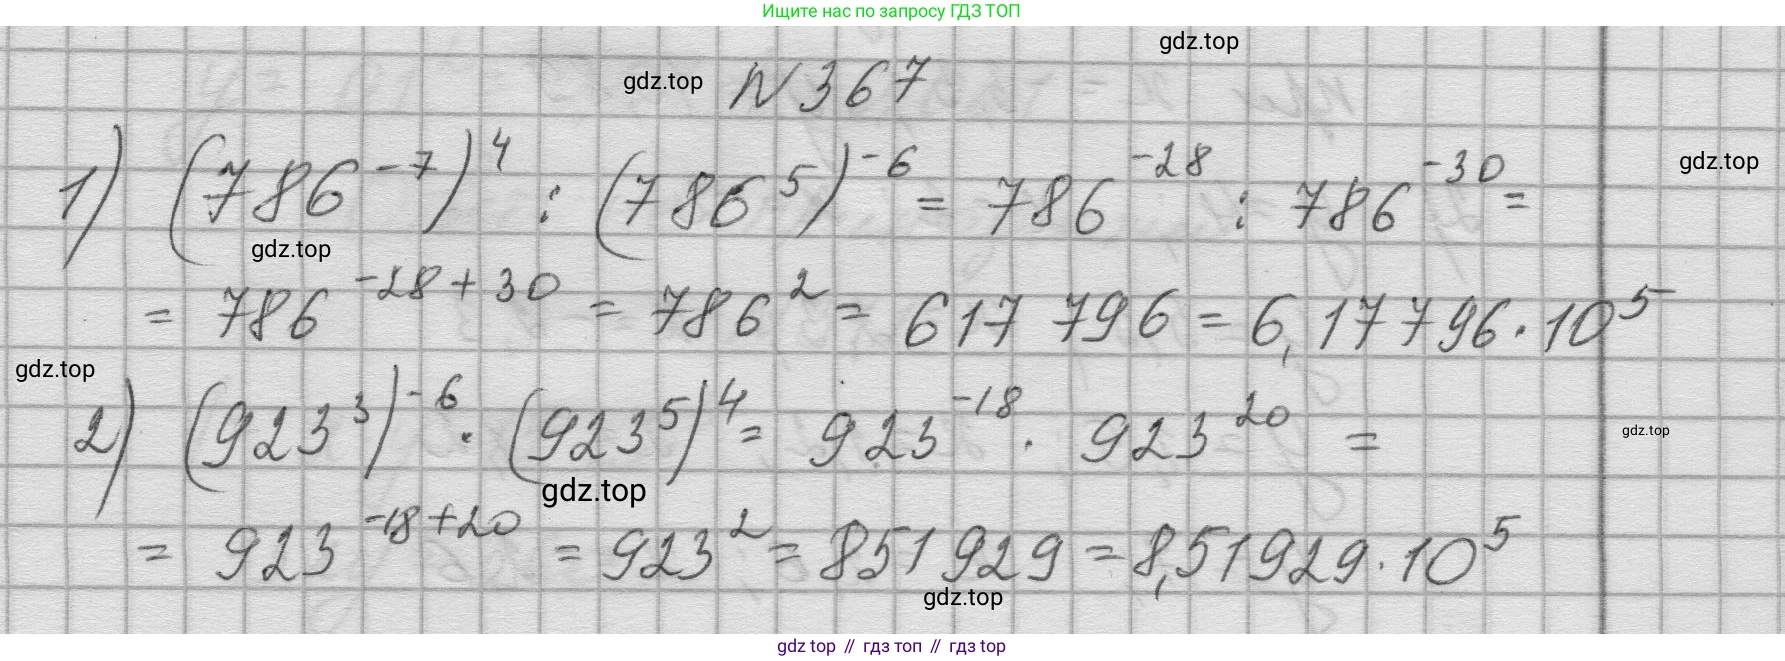 Ищите нас по запросу ГДЗ ТОП
gdz.top
gdz.top N 367
1) (786⁻⁷)⁴ : (786⁵)⁻⁶ = 786⁻²⁸ : 786⁻³⁰ = gdz.top
gdz.top
= 786⁻²⁸⁺³⁰ = 786² = 617 796 = 6,17796 · 10⁵
gdz.top
2) (923³)⁻⁶ · (923⁵)⁴ = 923⁻¹⁸ · 923²⁰ = gdz.top
gdz.top
= 923⁻¹⁸⁺²⁰ = 923² = 851 929 = 8,51929 · 10⁵
gdz.top
gdz top // гдз топ // гдз top